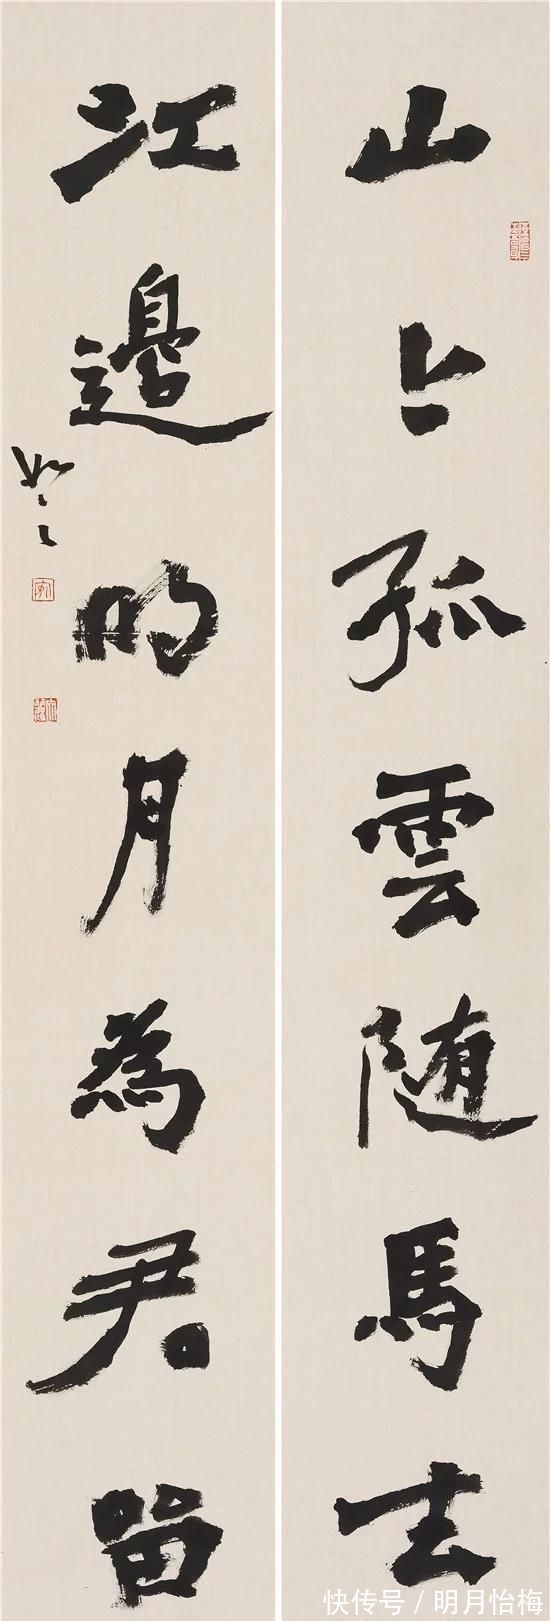 山上孤雲随馬去
江邊明月為君留
快传号/明月怡梅